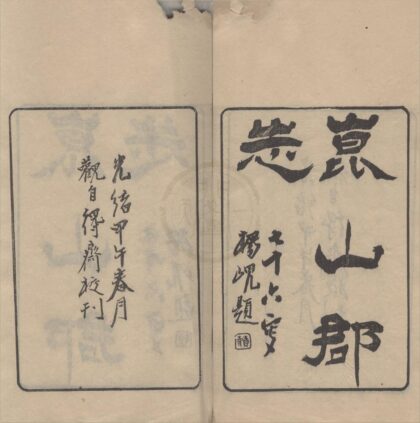 崑山郡
志
七十六叟
楊峴題
光緒甲午春月
觀自得齋校刊